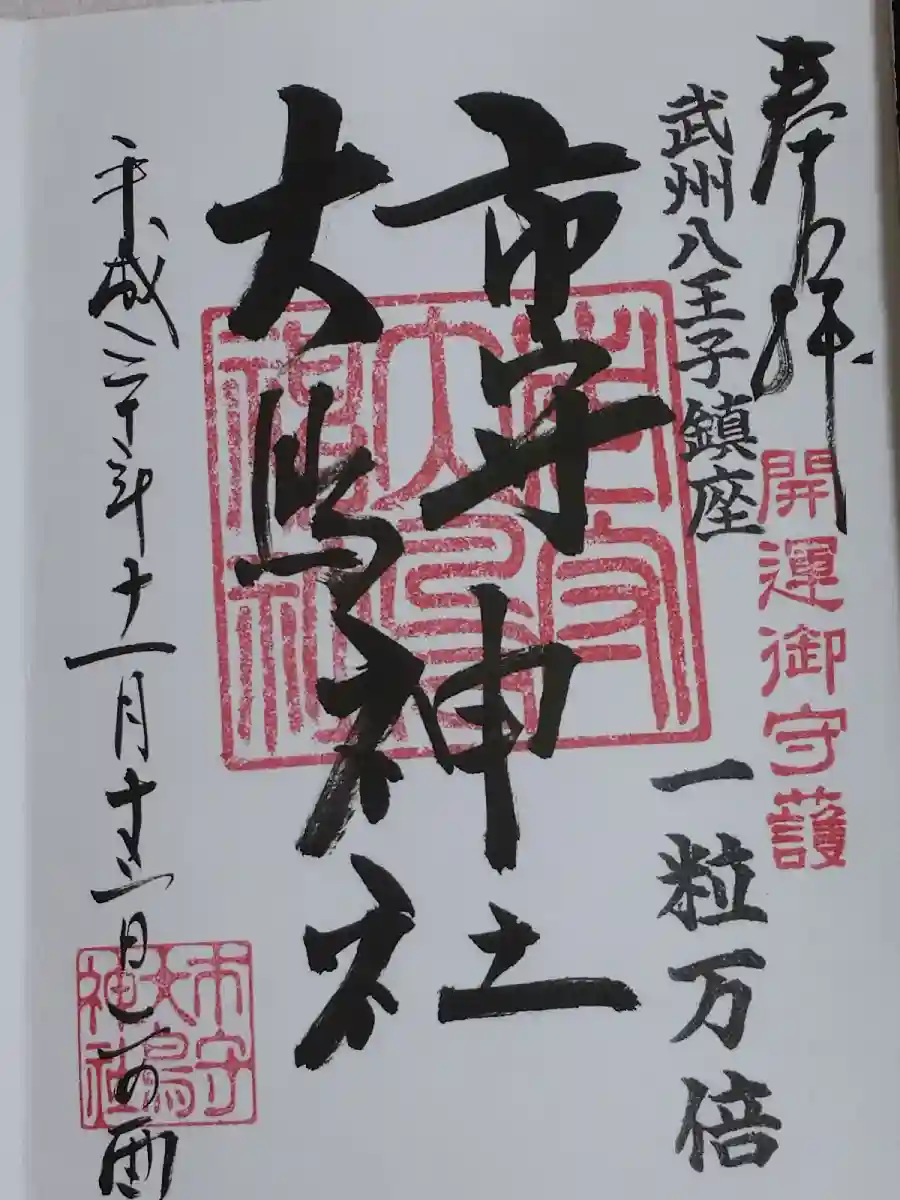 奉拝
開運御守護
武州八王子鎮座
一粒万倍
市守
大鳥
神社
市守
大鳥
神社
平成三十年十一月十三日二の酉
市守
大鳥
神社